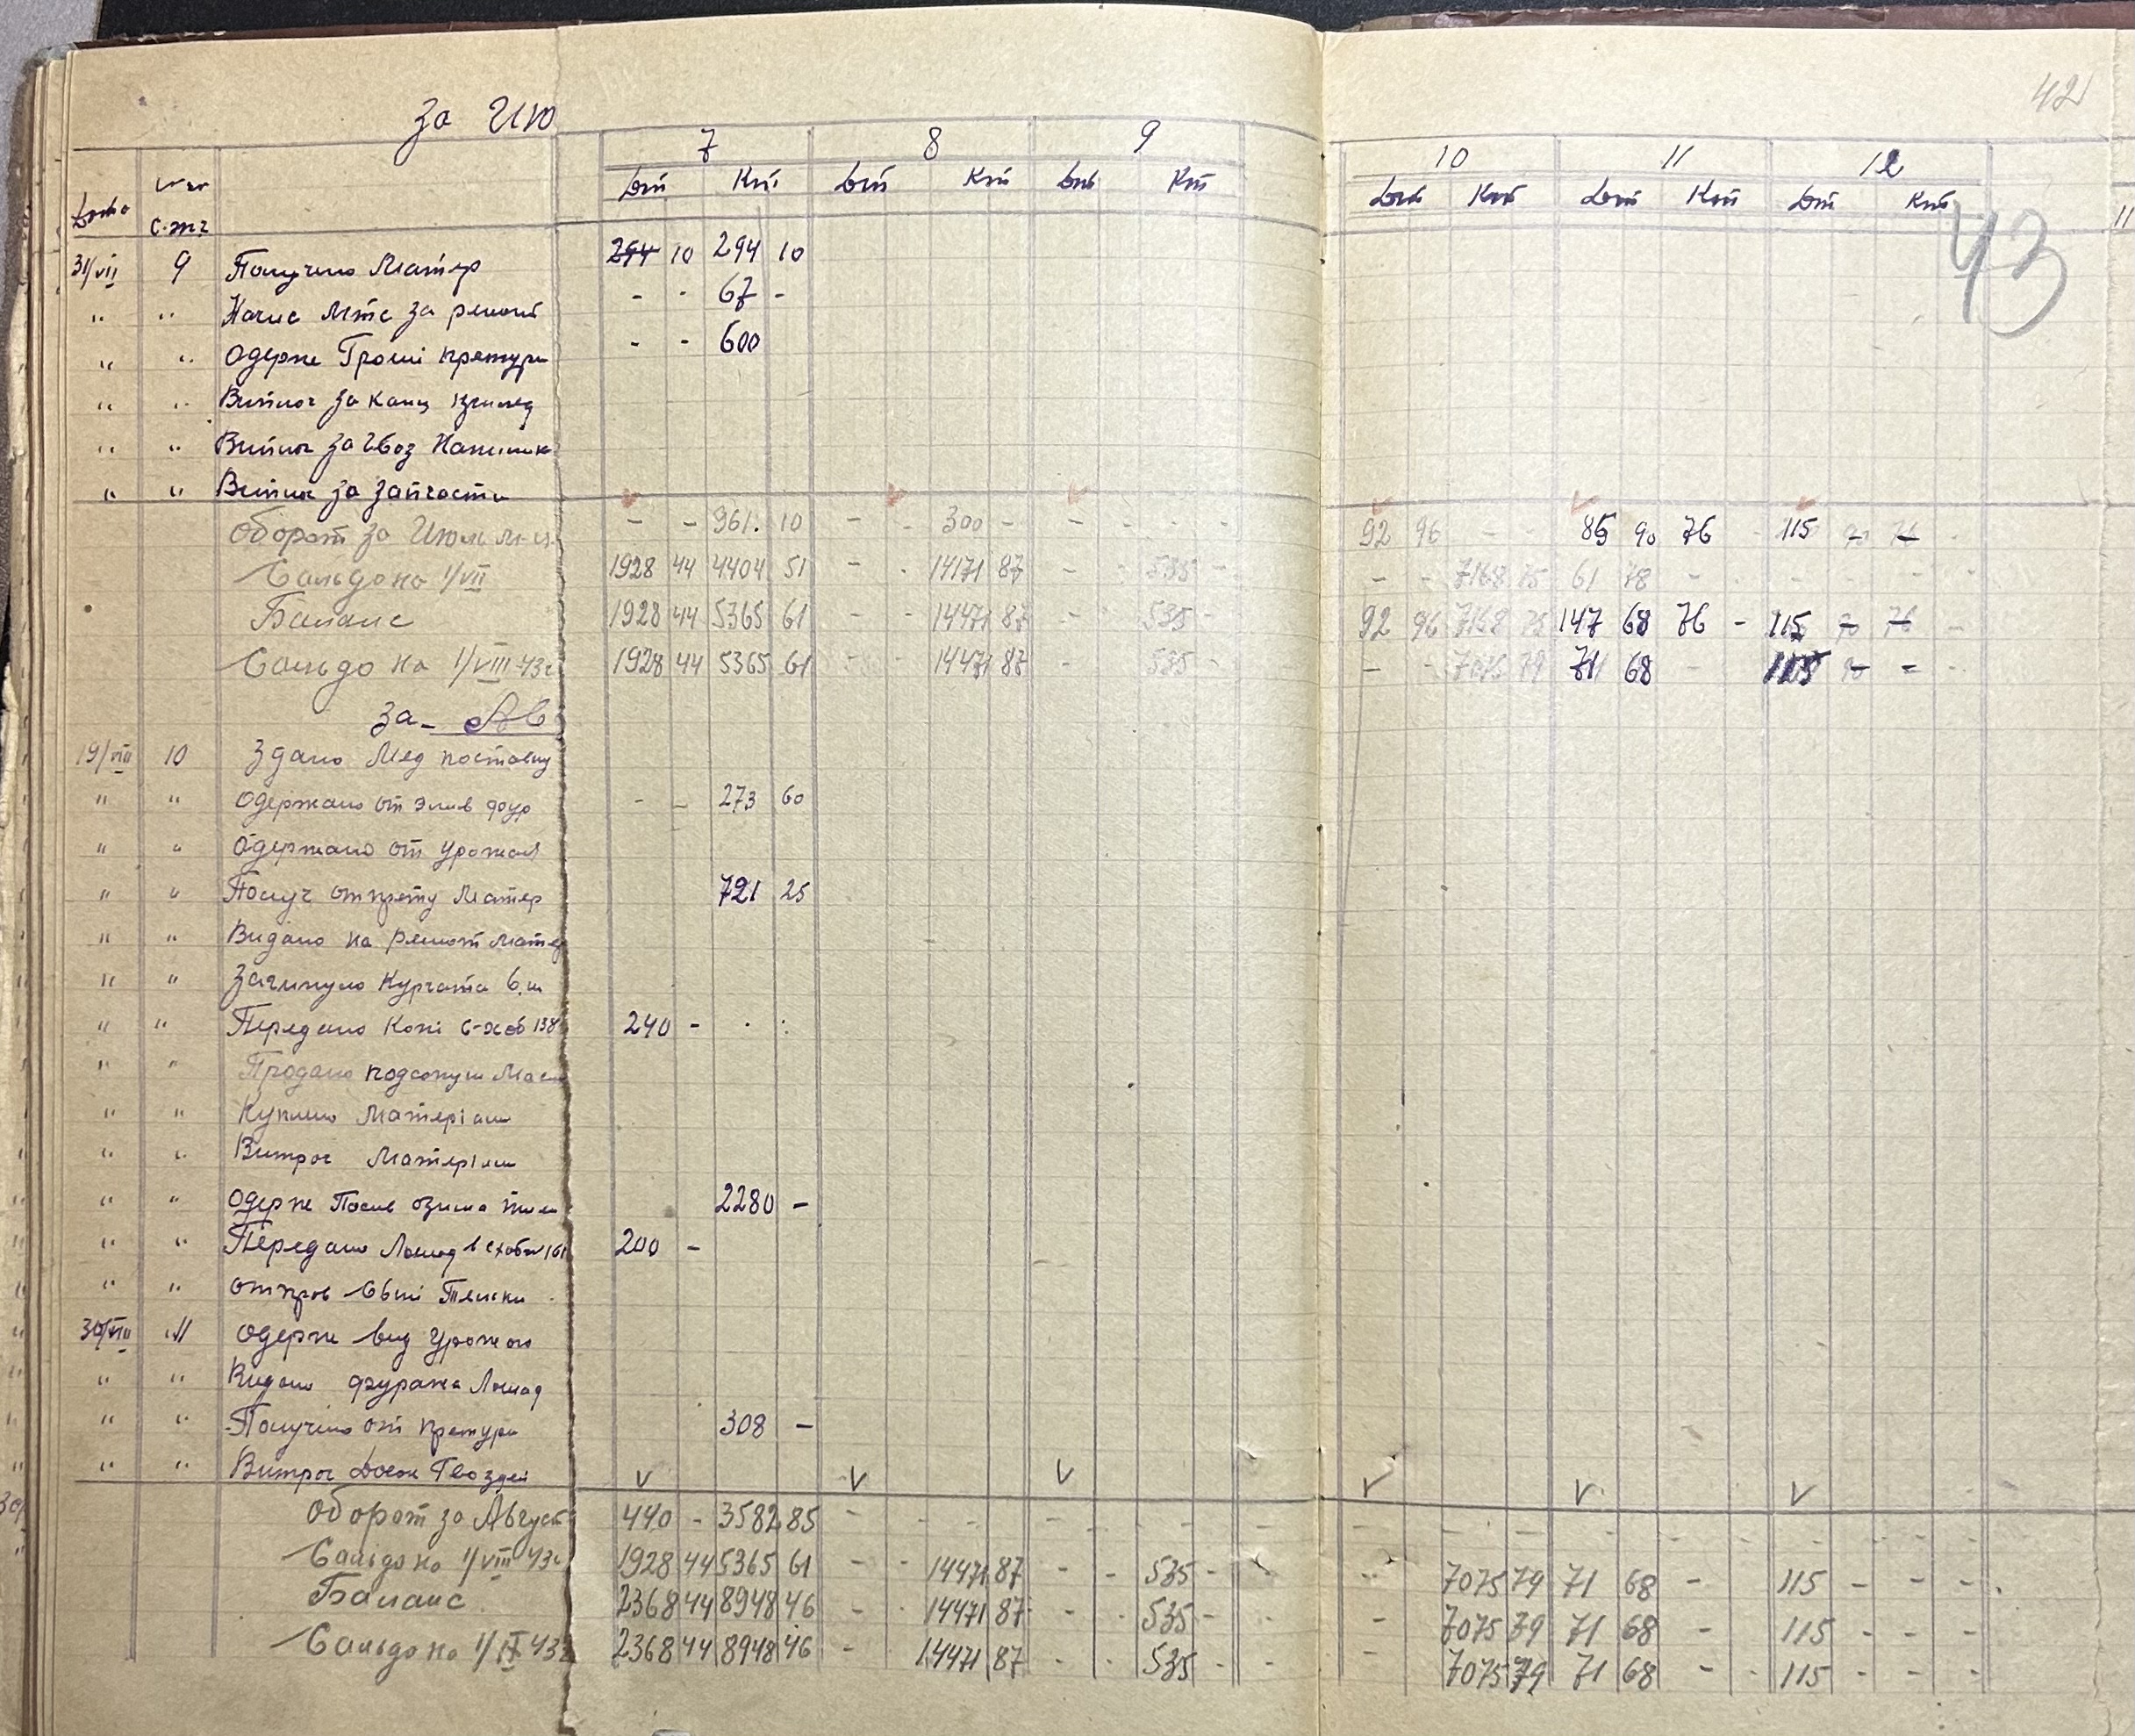 42
43
За Ию
7 8 9 10 11 12
Дт Кт Дт Кт Дт Кт Дт Кт Дт Кт Дт Кт
Дата с-та
31/VII 9 Получено Матер 294 10 294 10
" " Начис Мтс за ремонт - - 67 -
" " Одерже Гроші претури - - 600
" " Виплоч за канц
" " Виплоч за
" " Виплоч за запчасти
Оборот за Июль м-ц - - 961. 10 - - 300 - - - - - 92 96 - - 85 90 76 - 115
Сальдо на 1/VII 1928 44 4404 51 - - 14171 87 - 535 - - - 7168 75 61 78 - - - -
Баланс 1928 44 5365 61 - - 14471 87 - 535 - 92 96 7168 75 147 68 76 - 115
Сальдо на 1/VIII 43г 1928 44 5365 61 14471 87 - 535 - - - 7075 79 71 68 - 115 -
за - Ав
19/VIII 10 Здано Мед поставку
" " Одержано от фур - - 273 60
" " Одержано от урожая
" " Получ от прету Матер 721 25
" " Видано на ремонт Матер
" " Загинуло Курчата 6 ш
" " Передано Коні с-хоб 138 240 - . .
" " Продано подсолнуш Масл
" " Куплено Матеріали
" " Витрач Матеріали
" " Одерже Посів озима 2280 -
" " Передано Лошад в схоб 161 200 -
" " Отправ
30/VIII 11 Одерже вид Урожаю
" " Видано фуража Лошад
" " Получено от претури 308 -
" " Витрач Гвоздей
Оборот за Август 440 - 3582 85 - - - - - - - - - - - - - - - - - -
Сальдо на 1/VIII 43г 1928 44 5365 61 - - 14471 87 - - 535 - - 7075 79 71 68 - 115 - - -
Баланс 2368 44 8948 46 - - 14471 87 - - 535 - - 7075 79 71 68 - 115 - - -
Сальдо на 1/IX 43г 2368 44 8948 46 - 14471 87 - - 535 - - 7075 79 71 68 - - 115 - - -